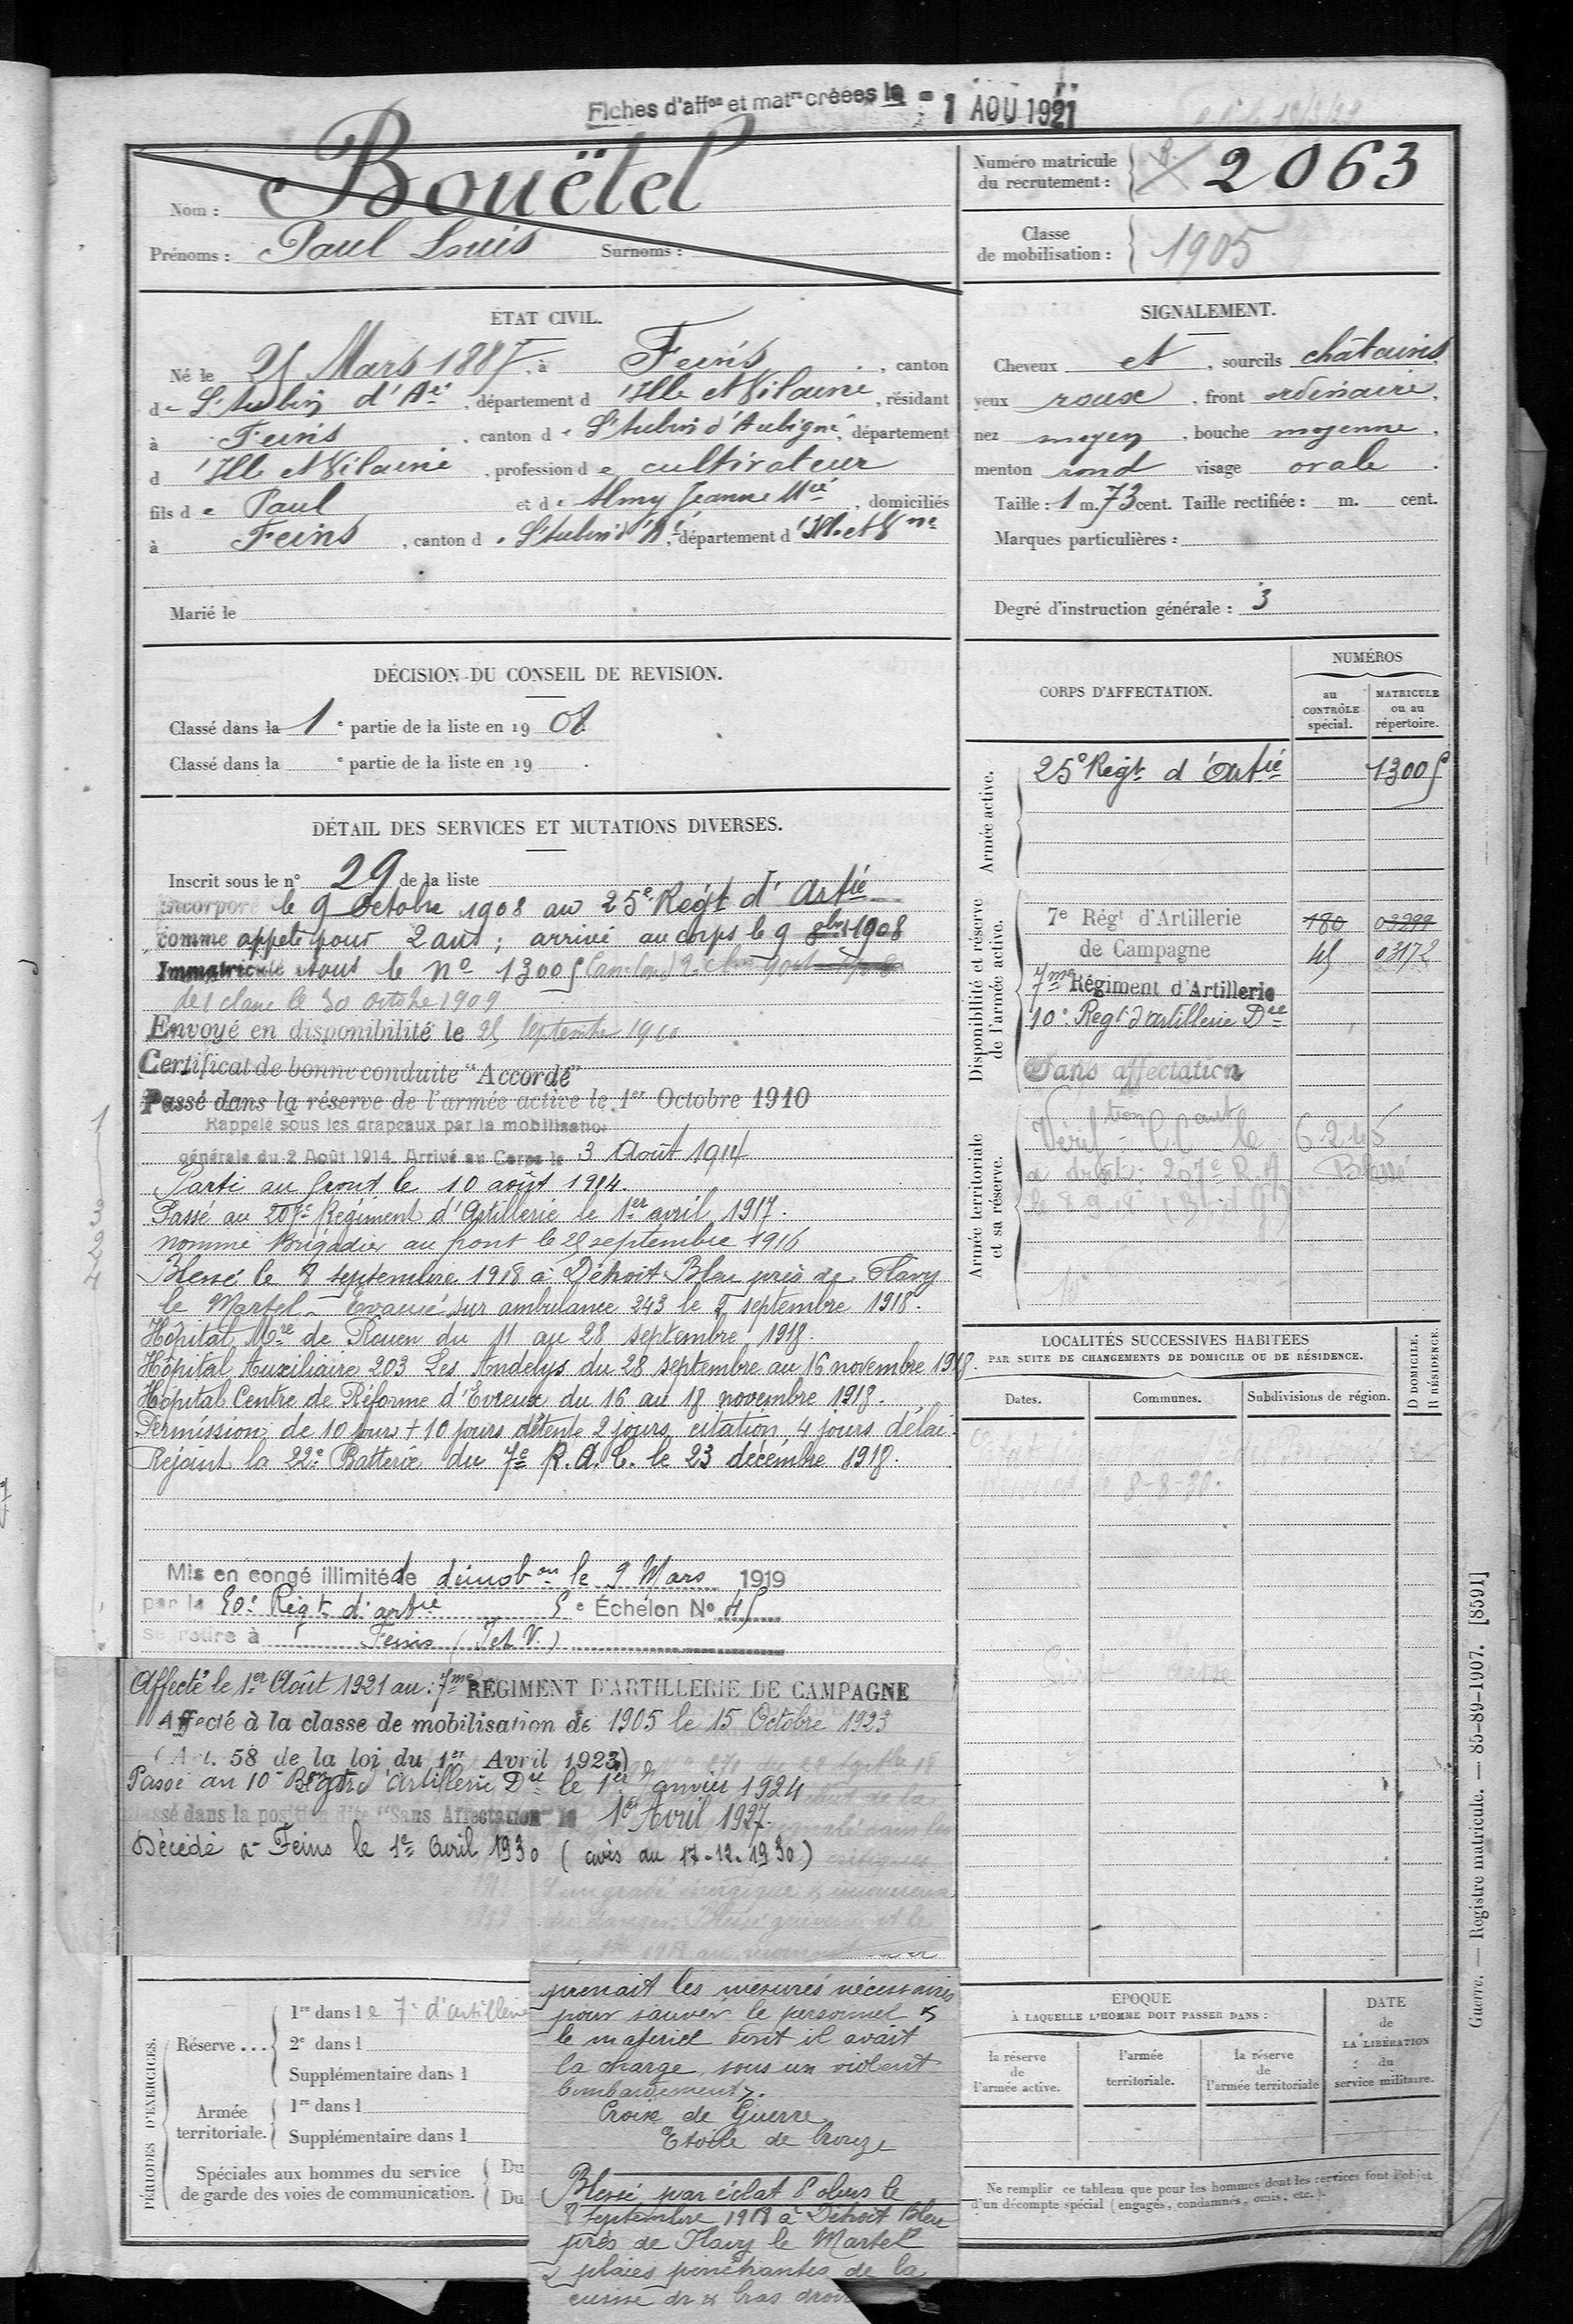 Fiches d'affon et matre créées le = 1 AOU 1921
Nom : Bouëtel
Prénoms : Paul Louis Surnoms :
Numéro matricule du recrutement : 2063
Classe de mobilisation : 1905
ÉTAT CIVIL.
Né le 25 Mars 1887, à Feins, canton
de St Aubin d'Aé, département d'Ille et Vilaine, résidant
à Feins, canton de St Aubin d'Aubigné, département
d'Ille et Vilaine, profession de cultivateur
fils de Paul et de Amy Jeanne Mie, domiciliés
à Feins, canton de St Aubin d'Aé, département d'Ille et Vne
Marié le
SIGNALEMENT.
Cheveux et, sourcils châtains
yeux roux, front ordinaire,
nez moyen, bouche moyenne,
menton rond visage ovale.
Taille : 1 m. 73 cent. Taille rectifiée : m. cent.
Marques particulières :
Degré d'instruction générale : 3
DÉCISION DU CONSEIL DE REVISION.
Classé dans la 1e partie de la liste en 1908.
Classé dans la e partie de la liste en 19 .
DÉTAIL DES SERVICES ET MUTATIONS DIVERSES.
Inscrit sous le n° 29 de la liste
Incorporé le 9 Octobre 1908 au 25e Régt d'Artie
comme appelé pour 2 ans ; arrivé au corps le 9 8bre 1908
Immatriculé sous le No 13005
de 1 classe le 30 octobre 1909
Envoyé en disponibilité le 25 Septembre 1910
Certificat de bonne conduite "Accordé"
Passé dans la réserve de l'armée active le 1er Octobre 1910
Rappelé sous les drapeaux par la mobilisation
générale du 2 Août 1914. Arrivé au Corps le 3 Août 1914
Parti au front le 10 août 1914.
Passé au 207e Régiment d'Artillerie le 1er avril 1917.
Nommé Brigadier au front le 28 septembre 1916
Blessé le 8 septembre 1918 à Détroit Bleu près de Flavy
le Martel - Evacué sur ambulance 243 le 9 septembre 1918.
Hôpital Mre de Rouen du 11 au 28 septembre 1918.
Hôpital Auxiliaire 203 Les Andelys du 28 septembre au 16 novembre 1918.
Hôpital Centre de Réforme d'Evreux du 16 au 18 novembre 1918.
Permission de 10 jours + 10 jours détente 2 jours citation 4 jours délai.
Rejoint la 22e Batterie du 7e R.A.C. le 23 décembre 1918.
Mis en congé illimité de démobon le 9 Mars 1919
par le 50e Régt d'artie 5e Échelon No 45
se retire à Feins (I et V.)
Affecté le 1er Août 1921 au : 7me REGIMENT D'ARTILLERIE DE CAMPAGNE
Affecté à la classe de mobilisation de 1905 le 15 Octobre 1923
(Art. 58 de la loi du 1er Avril 1923)
Passé au 10e Régt d'Artillerie Dre le 1er Janvier 1924
Passé dans la position dite "Sans Affectation" le 1er Avril 1927.
Décédé à Feins le 1er Avril 1930 (avis du 17-12-1930)
CORPS D'AFFECTATION.
NUMÉROS
au CONTRÔLE spécial.
MATRICULE ou au répertoire.
Armée active.
25e Régt d'Artie 13005
Disponibilité et réserve de l'armée active.
7e Régt d'Artillerie 180 03299
de Campagne 45 03172
7me Régiment d'Artillerie
10e Regt d'artillerie Dre
Sans affectation
Armée territoriale et sa réserve.
6245
207e R.A Blessé
LOCALITÉS SUCCESSIVES HABITÉES
PAR SUITE DE CHANGEMENTS DE DOMICILE OU DE RÉSIDENCE.
Dates. Communes. Subdivisions de région.
D DOMICILE.
R RÉSIDENCE.
8-8-30.
PÉRIODES D'EXERCICES.
Réserve ... 1re dans le 7e d'artillerie
2e dans l
Supplémentaire dans l
Armée territoriale. 1re dans l
Supplémentaire dans l
Spéciales aux hommes du service Du
de garde des voies de communication. Du
prenait les mesures nécessaires
pour sauver le personnel &
le matériel dont il avait
la charge, sous un violent
bombardement".
Croix de Guerre
Etoile de bronze
Blessé par éclat d'obus le
8 septembre 1918 à Détroit Bleu
près de Flavy le Martel
2 plaies pénétrantes de la
cuisse dr & bras droit
EPOQUE
À LAQUELLE L'HOMME DOIT PASSER DANS :
la réserve de l'armée active.
l'armée territoriale.
la réserve de l'armée territoriale
DATE de LA LIBÉRATION du service militaire.
Ne remplir ce tableau que pour les hommes dont les services font l'objet
d'un décompte spécial (engagés, condamnés, omis, etc.).
Guerre. — Registre matricule. — 85-89-1907. [8591]